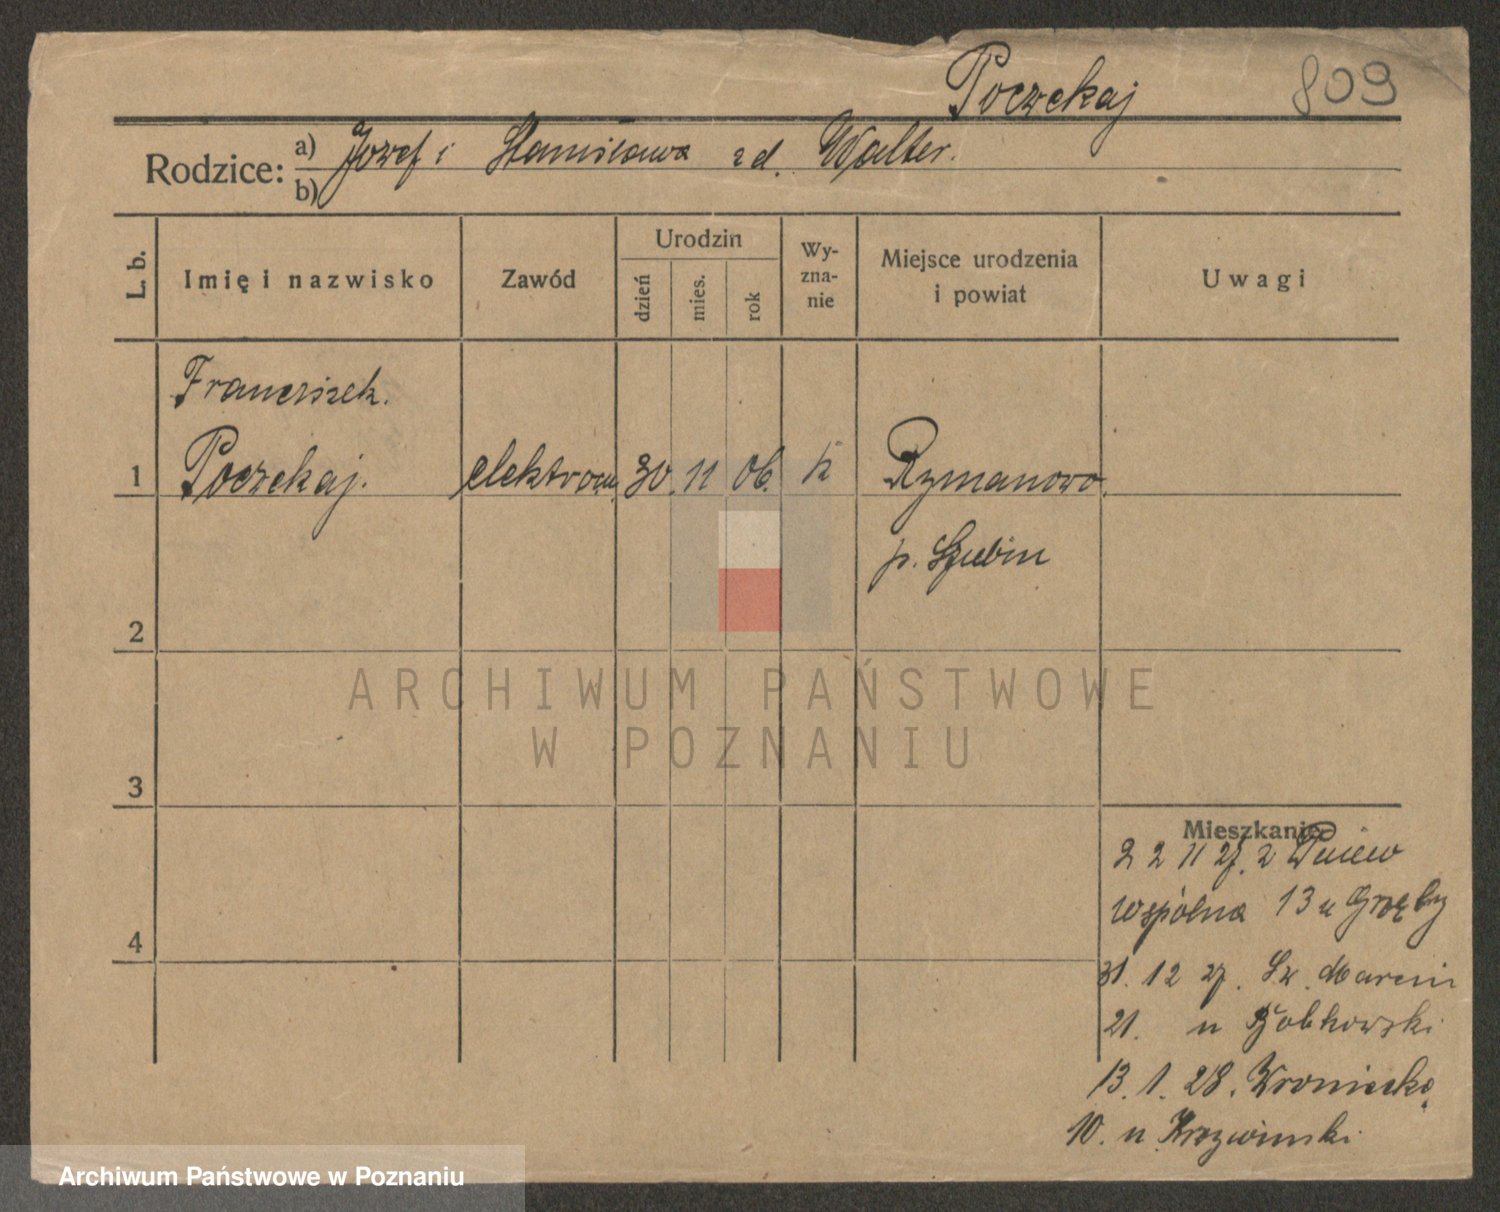 Poczekaj 809
Rodzice: a) Józef i Stanisława z d. Walter.
b)
L. b. Imię i nazwisko Zawód Urodzin dzień mies. rok Wy-zna-nie Miejsce urodzenia i powiat Uwagi
Franciszek.
1 Poczekaj. elektrom. 30. 11 06. k Rzmanowo.
p. Szubin
2
ARCHIWUM PAŃSTWOWE
W POZNANIU
3
Mieszkanie
22 11 27. z Pniew
4 Wspólna 13 u Gręby
31. 12 27. Św. Marcin
21. u Bobkowski
13. 1. 28. Wroniecka
10. u Krzywinski.
Archiwum Państwowe w Poznaniu